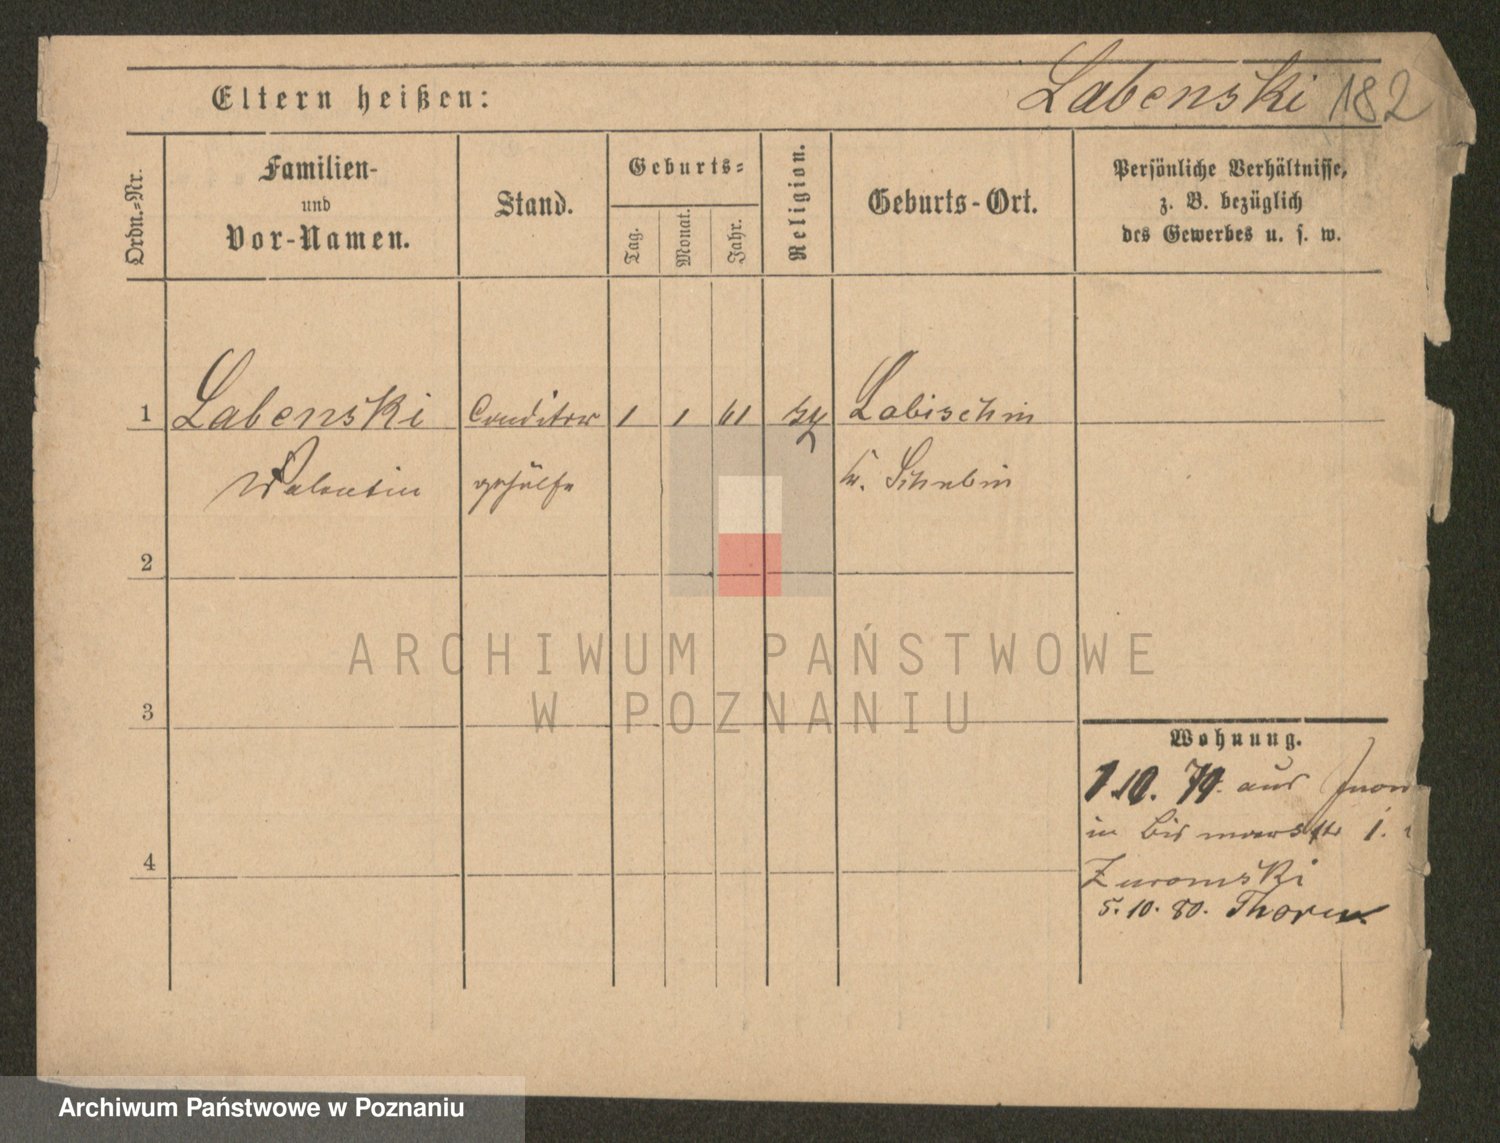 Eltern heißen:
Labenski 182
Ordn.-Nr.
Familien-
und
Vor-Namen.
Stand.
Geburts-
Tag.
Monat.
Jahr.
Religion.
Geburts-Ort.
Persönliche Verhältnisse,
z. B. bezüglich
des Gewerbes u. s. w.
1 Labenski Conditor 1 1 61 Labischin
Valentin gehülfe Kr. Schubin
2
3
4
Wohnung.
1.10.79. aus
in Bismarkstr 1.
Zuromski
5.10.80. Thorn
ARCHIWUM PAŃSTWOWE
W POZNANIU
Archiwum Państwowe w Poznaniu